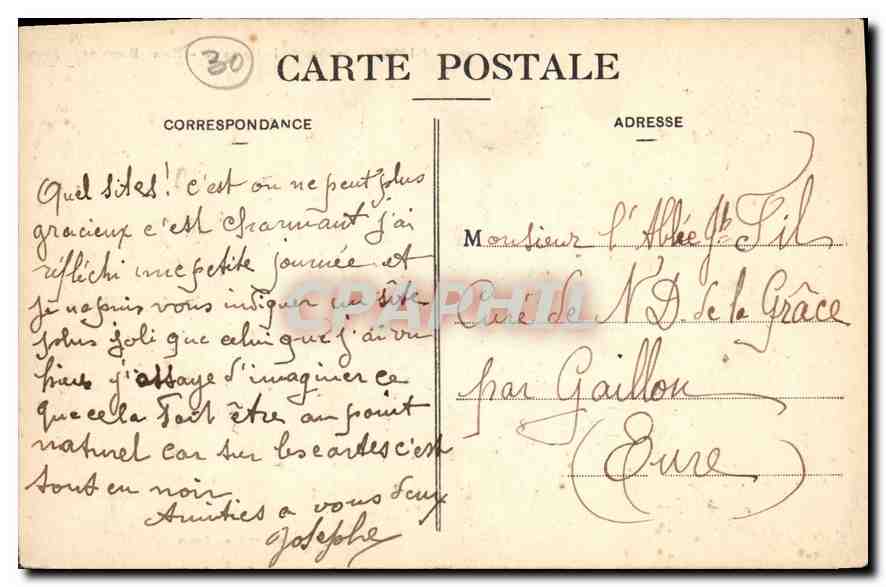 30
CARTE POSTALE
CORRESPONDANCE
Quel sites! c'est on ne peut plus
gracieux c'est charmant j'ai
réfléchi une petite journée et
je ne puis vous indiquer un site
plus joli que celui que j'ai vu
hier j'assaye d'imaginer ce
que cela fait être au point
naturel car sur les cartes c'est
tout en noir
Amitiés a vous deux
Josephe
ADRESSE
Monsieur l'Abbée Jh Fil
Curé de N. D. de la Grâce
par Gaillon
(Eure)
CPAPHIL